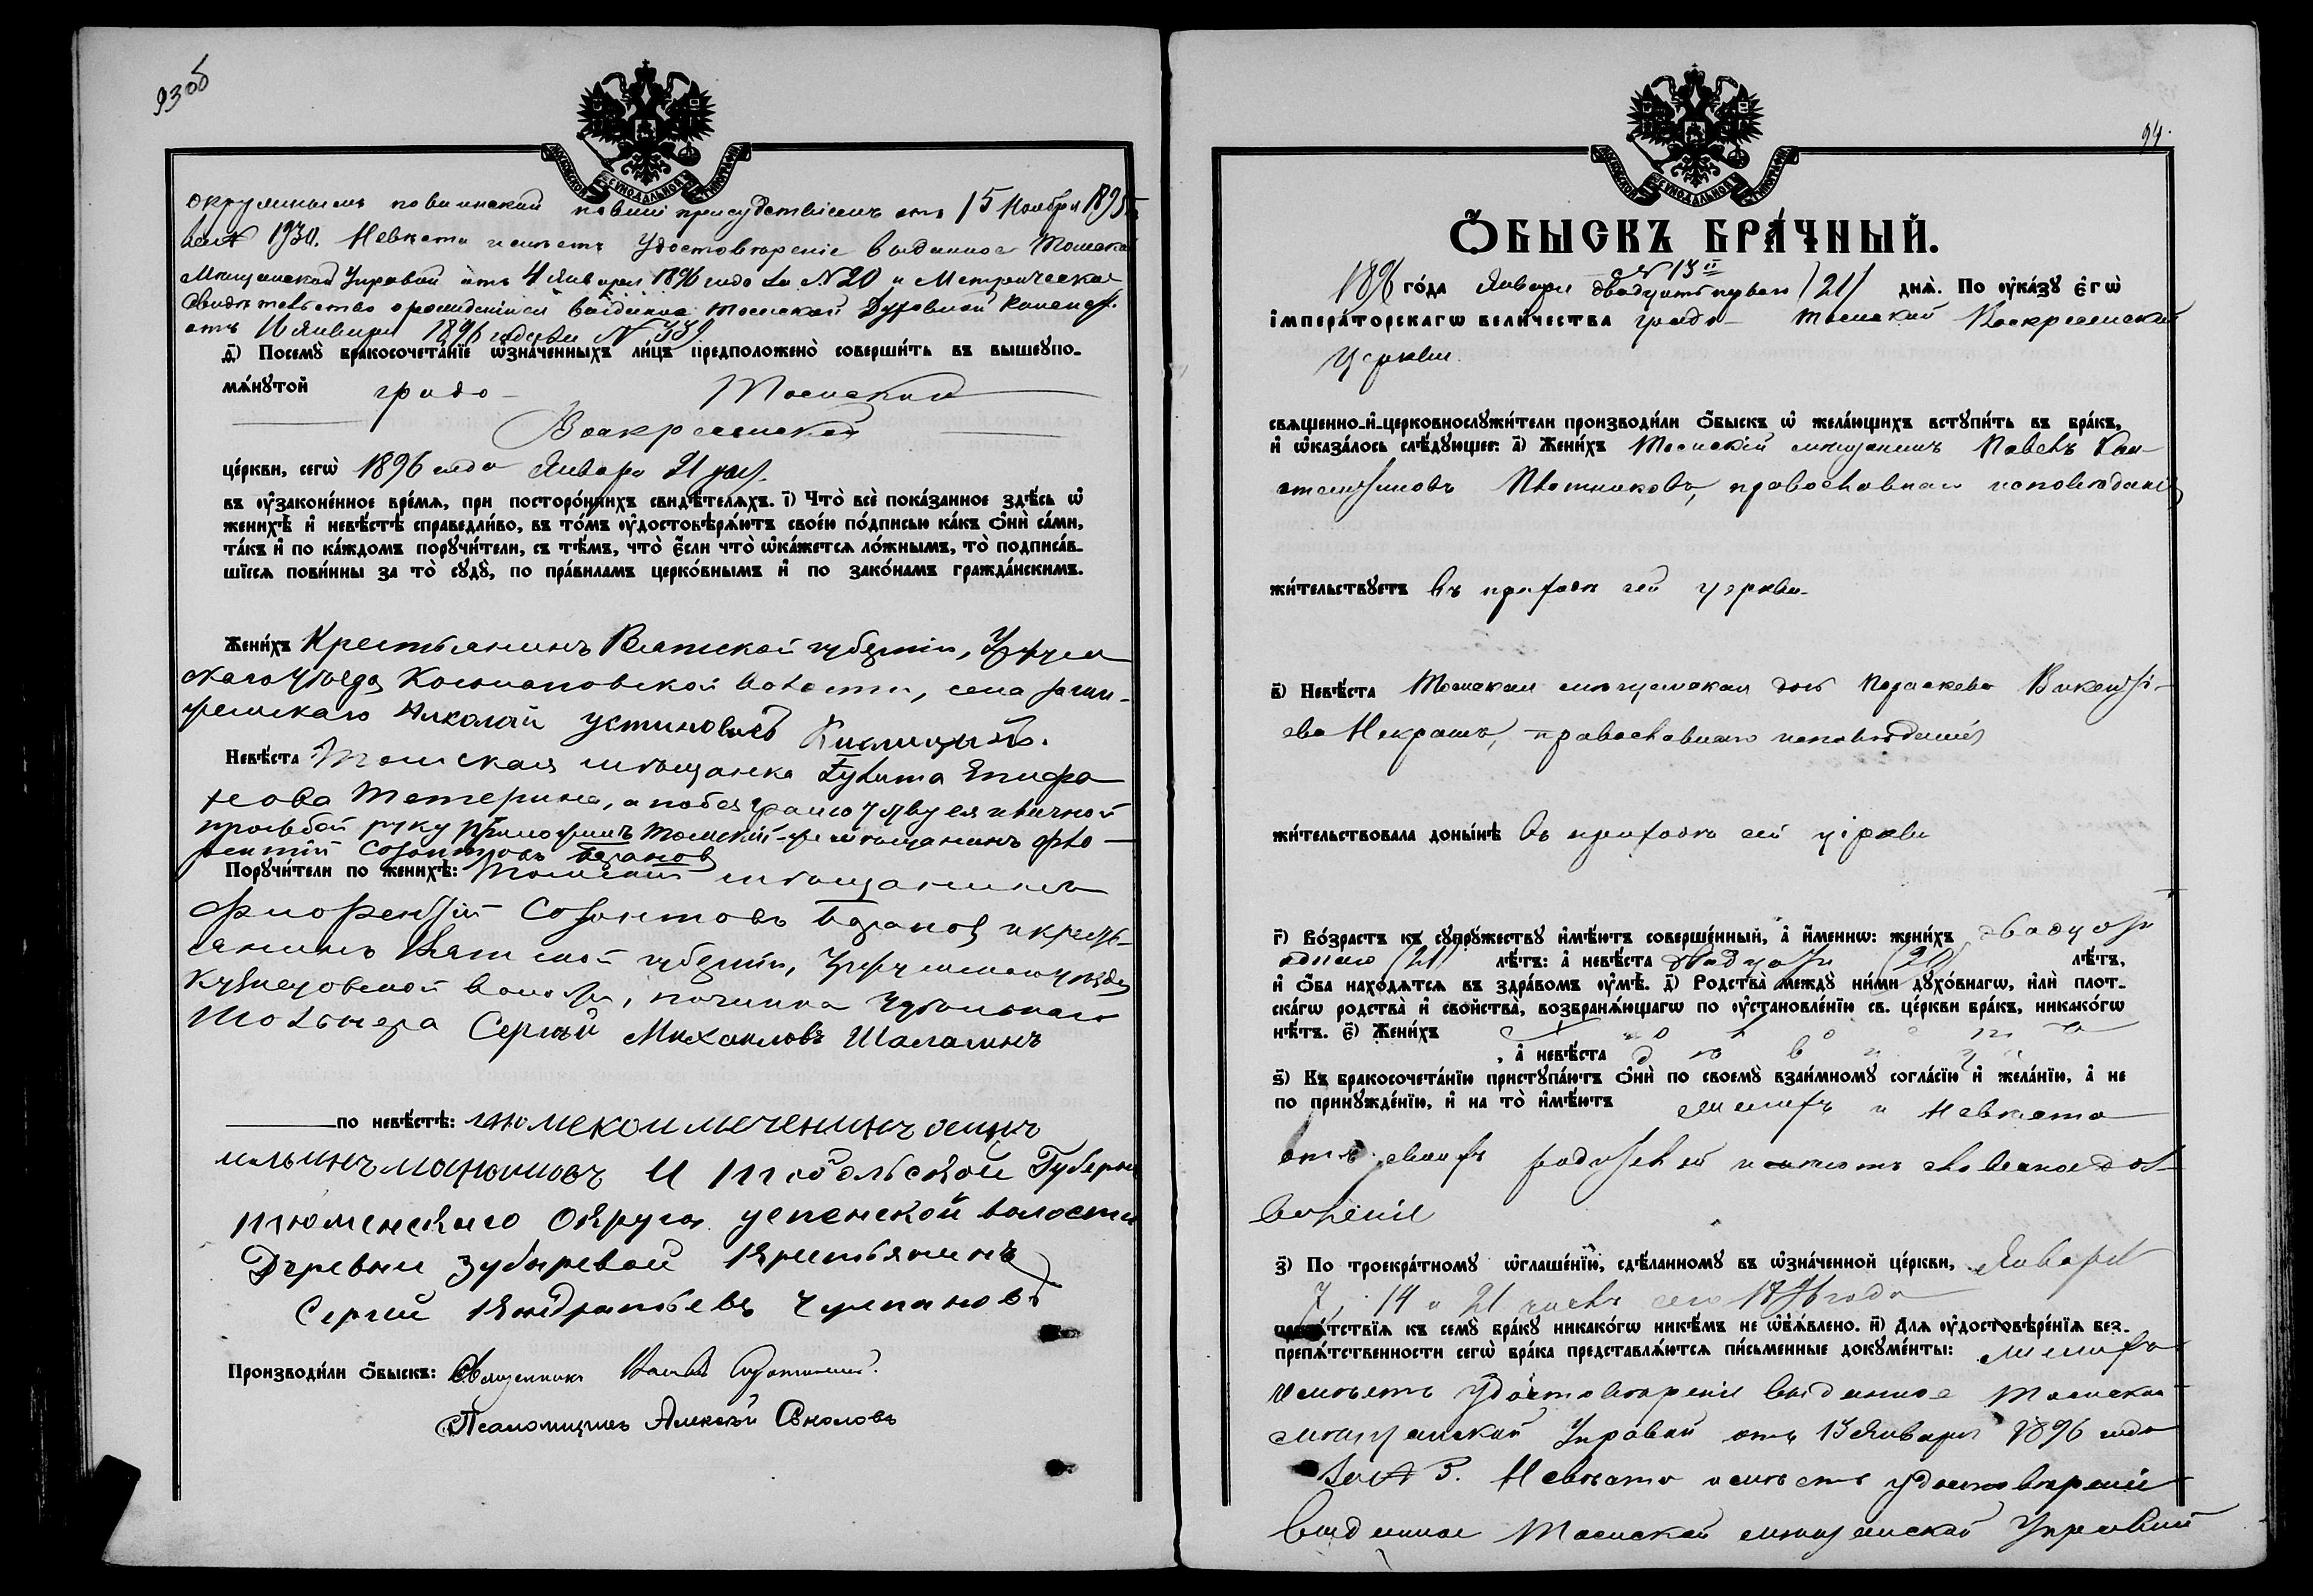 93об
МОСКОВСКОЙ СѴНОДАЛЬНОЙ ТИПОГРАФІИ
окружнымъ по воинской повин. присудствіемъ отъ 15 Ноября 1895 г.
за № 1930. Невѣста имѣетъ Удостовѣреніе выданное Томской
Мѣщанской Управой отъ 4 Января 1896 года за № 20 и Метрическое
Свидѣтельство о рожденіи выданное Томской Духовной Консист.
отъ Января 1896 года за № 339
д҃) Посемꙋ̀ бракосочета́нїе ѡ҆зна́ченныхъ ли́цъ предположено̀ соверши́ть въ вышеꙋпо-
мѧ́нꙋтой градо- Томской
Воскресенской
це́ркви, сегѡ̀ 1896 года Января 21 дня
въ ᲂу҆зако́ненное вре́мѧ, при посторо́ннихъ свидѣ́телѧхъ. і҃) Что̀ всѐ пока́занное здѣ́сь ѡ҆
женихѣ̀ и҆ невѣ́стѣ справедли́во, въ то́мъ ᲂу҆достовѣрѧ́ютъ свое́ю по́дписью ка́къ ѻ҆нѝ са́ми,
та́къ и҆ по ка́ждомъ порꙋчи́тели, съ тѣ́мъ, что̀ є҆́сли что̀ ѡ҆ка́жетсѧ ло́жнымъ, то̀ подписа́в-
шїесѧ пови́нны за то̀ сꙋдꙋ̀, по пра́виламъ церко́внымъ и҆ по зако́намъ гражда́нскимъ.
Жени́хъ Крестьянинъ Вятской губерніи, Уржум
скаго Уѣзда Косолаповской волости, села
Николай Устиновъ
Невѣ́ста Томская мѣщанка Гулита Епифа
нова Тетерина, а по безграмотству ея и личной
просьбой руку приложилъ Томскій мѣщанинъ Фло
рентій Созонтовъ Барановъ
Порꙋчи́тели по женихѣ̀: Томскій мѣщанинъ
Флорентій Созонтовъ Барановъ и кресть-
янинъ Вятской губерніи, Уржумскаго уѣзда
Кузнецовской волости, починка
Сергѣй Михаиловъ Шалагинъ
по невѣ́стѣ:
и Тобольской Губерніи
тюменскаго Округа успенской волости
Деревни зубыревой Крестьянинъ
Сергей Кондратьевъ Черепановъ
Производи́ли ѻ҆́быскъ: Священникъ
Псаломщикъ Алексѣй Соколовъ
94.
МОСКОВСКОЙ СѴНОДАЛЬНОЙ ТИПОГРАФІИ
Ѻ҆БЫСКЪ БРА́ЧНЫЙ.
№ 13й
1896 го́да Января двадцать перваго /21/ днѧ̀. По ᲂу҆ка́зꙋ є҆гѡ̀
і҆мпера́торскагѡ вели́чества градо- Томской Воскресенской
Церкви
свѧщенно-и҆-церковнослꙋжи́тели производи́ли ѻ҆́быскъ ѡ҆ жела́ющихъ встꙋпи́ть въ бра́къ,
и҆ ѡ҆каза́лось слѣ́дꙋющее: а҃) Жени́хъ Томскій мѣщанинъ Павелъ Кон-
стантиновъ Плотниковъ, православнаго исповѣданія
жи́тельствꙋетъ въ приходѣ сей церкви
в҃) Невѣ́ста Томская мѣщанская дочь Параскева Викентьи-
ева Некрашъ, православнаго исповѣданія
жи́тельствовала доны́нѣ въ приходѣ сей церкви
г҃) Во́зрастъ къ сꙋпрꙋ́жествꙋ и҆мѣ́ютъ соверше́нный, а҆ и҆́меннѡ: жени́хъ двадцати
одного (21) лѣ́тъ: а҆ невѣ́ста двадцати (20) лѣ́тъ,
и҆ ѻ҆́ба нахо́дѧтсѧ въ здра́вомъ ᲂу҆мѣ̀. д҃) Родства̀ междꙋ̀ ни́ми дꙋхо́внагѡ, и҆лѝ плот-
ска́гѡ родства̀ и҆ сво́йства̀, возбранѧ́ющагѡ по ᲂу҆становле́нїю св. це́ркви бра́къ, никако́гѡ
нѣ́тъ. є҃) Жени́хъ холостъ
, а҆ невѣ́ста дѣвица
ѕ҃) Къ бракосочета́нїю пристꙋпа́ютъ ѻ҆нѝ по своемꙋ̀ взаи́мномꙋ согла́сїю и҆ жела́нїю, а҆ не
по принꙋжде́нїю, и҆ на то̀ и҆мѣ́ютъ женихъ и невѣста
отъ своихъ родителей имѣютъ словесное доз-
воленіе
з҃) По троекра́тномꙋ ѡ҆глаше́нїю, сдѣ́ланномꙋ въ ѡ҆зна́ченной це́ркви, Января
7, 14 и 21 числъ сего 1896 года
препѧ́тствїѧ къ семꙋ̀ бра́кꙋ никако́гѡ никѣ́мъ не ѡ҆б̾ѧ́влено. и҃) Длѧ ᲂу҆достовѣре́нїѧ без-
препѧ́тственности сегѡ̀ бра́ка представлѧ́ютсѧ пи́сьменные докꙋме́нты: женихъ
имѣетъ Удостовѣреніе выданное Томской
мѣщанской Управой отъ 13 Января 1896 года
за № 3. Невѣста имѣетъ удостовѣреніе
выданное Томской мѣщанской Управой